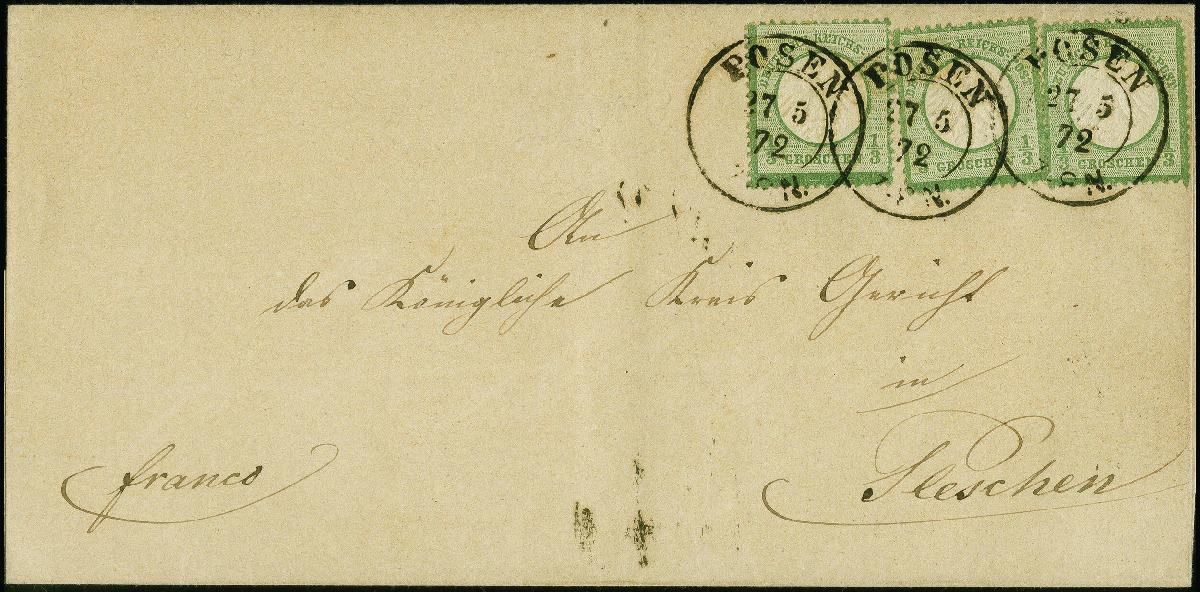 POSEN
27 5
72
N.
POSEN
27 5
72
N.
POSEN
27 5
72
N.
REICHS
1/3 GROSCHEN 1/3
REICHS
1/3 GROSCHEN 1/3
1/3 GROSCHEN 1/3
An
das Königliche Kreis Gericht
in
Pleschen
franco